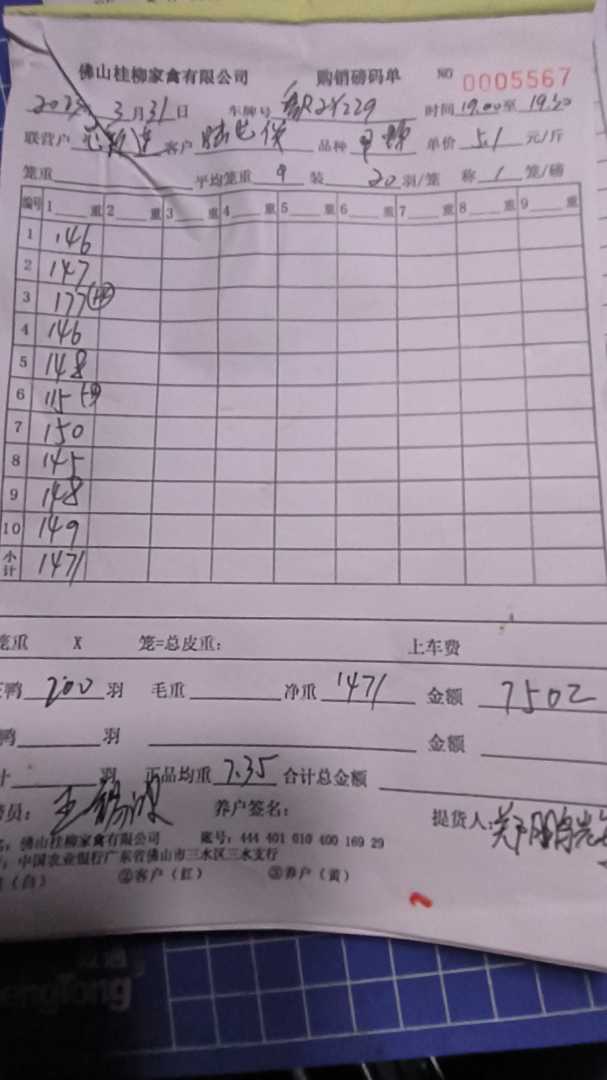 佛山桂柳家禽有限公司 购销磅码单 NO 0005567
3月31日 车牌号 229 时间 19.00至 19.30
联营户 客户 品种 单价 5.1 元/斤
笼重 平均笼重 9 装 20 羽/笼 称 1 笼/磅
编号 1 重 2 重 3 重 4 重 5 重 6 重 7 重 8 重 9 重
1 146
2 147
3 177
4 146
5 148
6 115
7 150
8 145
9 148
10 149
小计 1471
笼重 X 笼=总皮重: 上车费
鸭 200 羽 毛重 净重 1471 金额 7502
鸭 羽 金额
计 羽 正品均重 7.35 合计总金额
员: 养户签名: 提货人:
佛山桂柳家禽有限公司 账号: 444 401 010 400 169 29
中国农业银行广东省佛山市三水区三水支行
(白) ②客户(红) ③养户(黄)
engTong